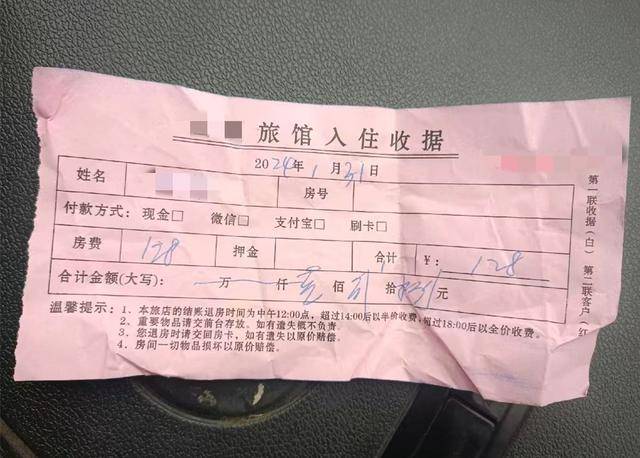 旅馆入住收据
2024年1月31日
姓名 房号
付款方式: 现金□ 微信□ 支付宝□ 刷卡□
房费 128 押金 合计 ¥: 128
合计金额(大写): 万 仟 壹 佰 拾 元
温馨提示: 1、本旅店的结账退房时间为中午12:00点, 超过14:00后以半价收费; 超过18:00后以全价收费。
2、重要物品请交前台存放。如有遗失概不负责。
3、您退房时请交回房卡, 如有遗失以原价赔偿。
4、房间一切物品损坏以原价赔偿。
第一联收据(白) 第二联客户 红